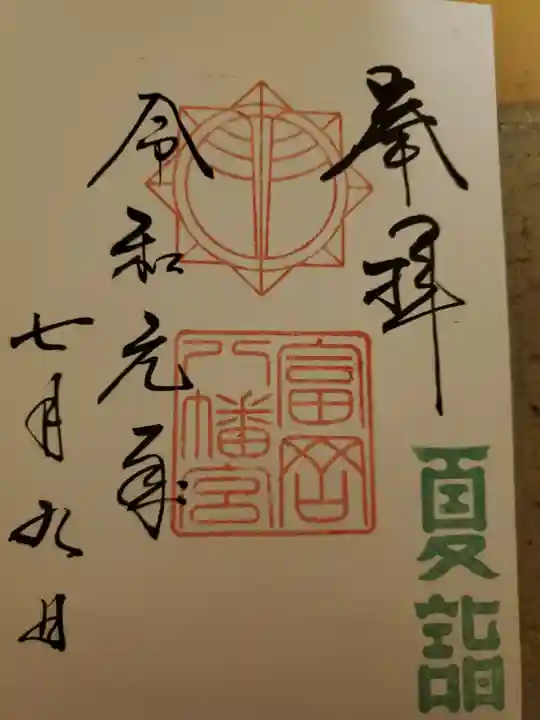 奉拝
夏詣
富岡
八幡宮
令和元年
七月九日